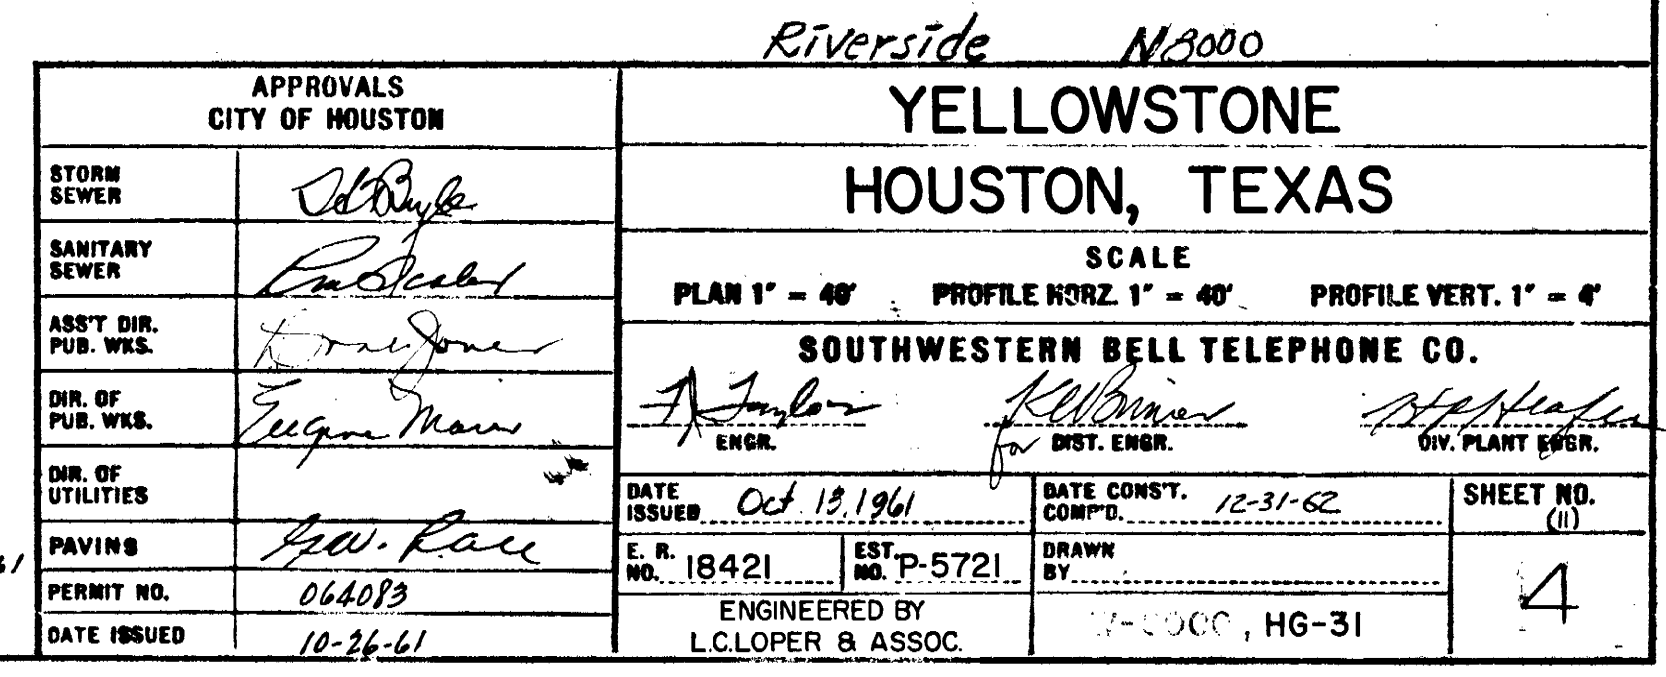 Riverside N8000
APPROVALS
CITY OF HOUSTON
STORM
SEWER
SANITARY
SEWER
ASS'T DIR.
PUB. WKS.
DIR. OF
PUB. WKS.
Eugene Maier
DIR. OF
UTILITIES
PAVING
PERMIT NO. 064083
DATE ISSUED 10-26-61
YELLOWSTONE
HOUSTON, TEXAS
SCALE
PLAN 1" = 40' PROFILE HORZ. 1" = 40' PROFILE VERT. 1" = 4'
SOUTHWESTERN BELL TELEPHONE CO.
FJ Taylor
ENGR.
for DIST. ENGR.
DIV. PLANT ENGR.
DATE
ISSUED Oct. 13, 1961
DATE CONS'T.
COMP'D. 12-31-62
SHEET NO.
(11)
4
E. R.
NO. 18421
EST.
NO. P-5721
DRAWN
BY
ENGINEERED BY
L.C.LOPER & ASSOC.
, HG-31